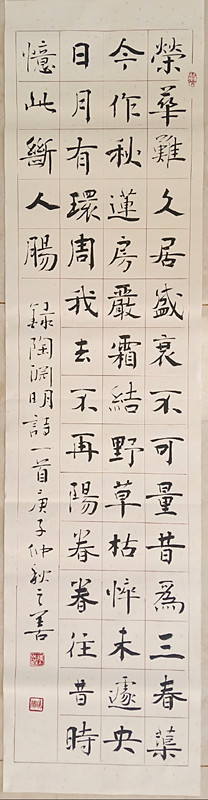 榮華難久居盛衰不可量昔爲三春蕖
今作秋蓮房嚴霜結野草枯悴未遽央
日月有環周我去不再陽眷眷往昔時
憶此斷人腸
錄陶淵明詩一首庚子仲秋之善